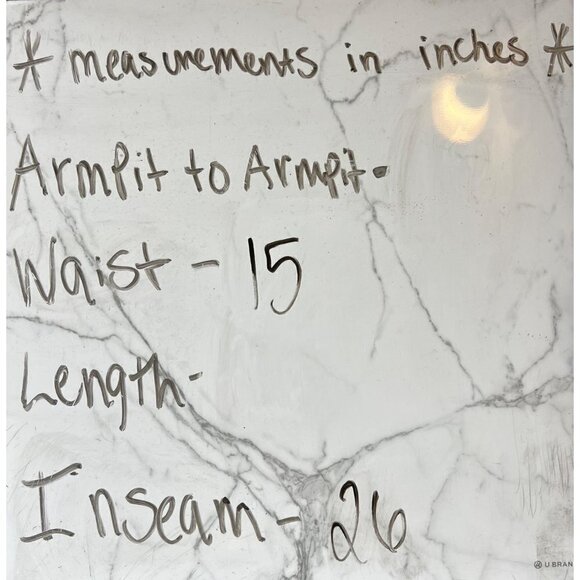 * measurements in inches *
ArmPit to Armpit-
Waist - 15
Length-
Inseam - 26
U BRAN